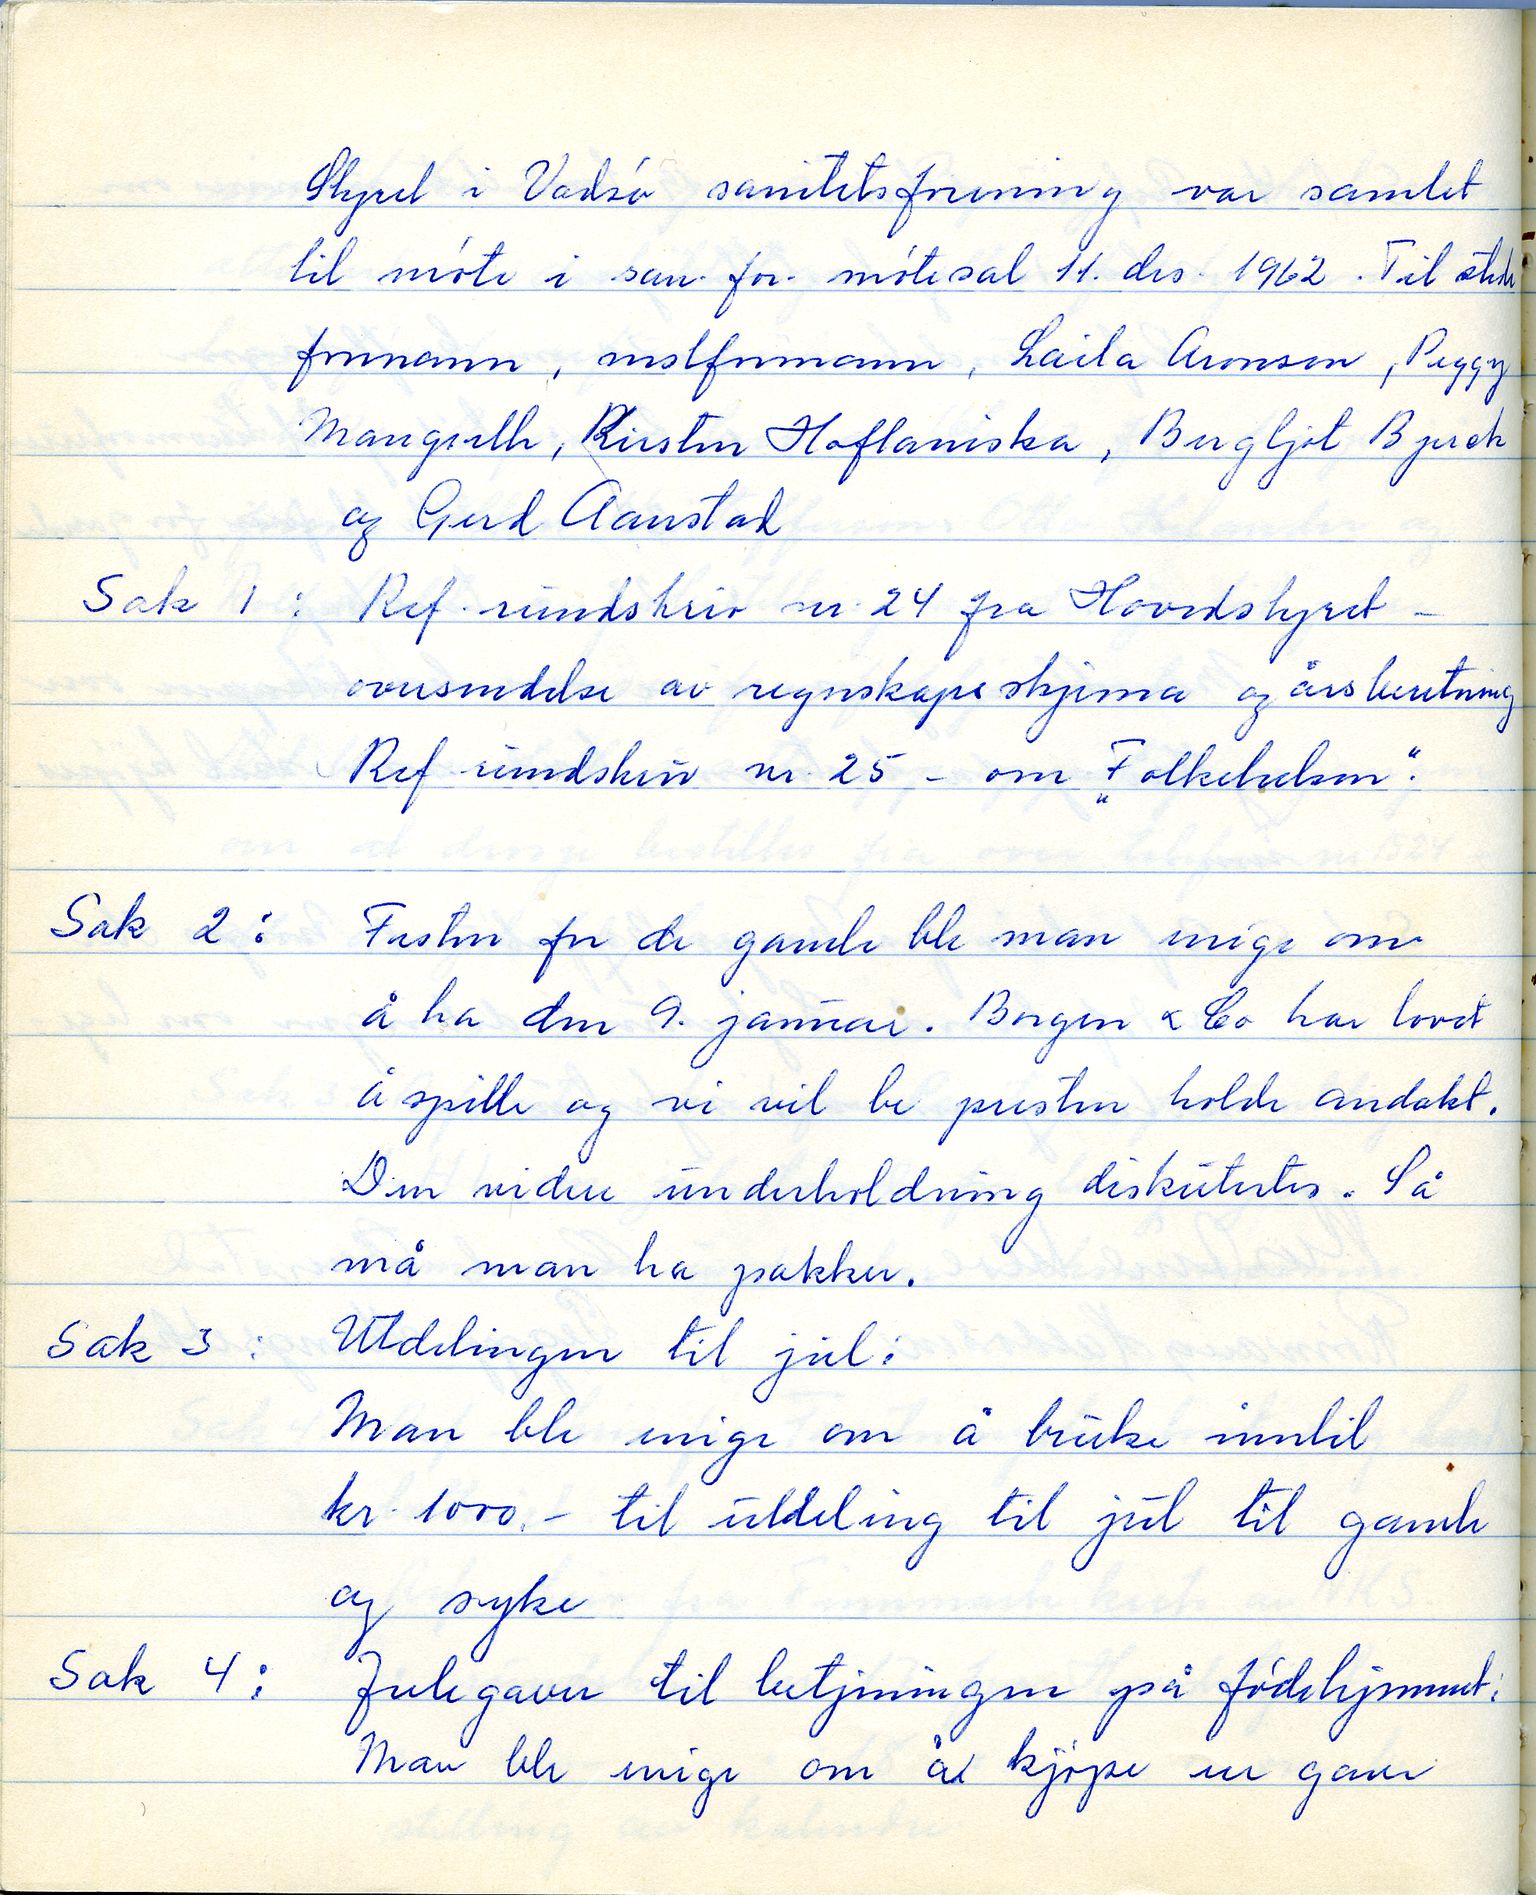 Styret i Vadsø sanitetsforening var samlet
til møte i san. for. møtesal 11. des. 1962. Til stede
formann, nestformann, Laila Aronsen, Peggy
Mangseth, Kirsten Hoflaniska, Bergljot Bjerck
og Gerd Aanstad
Sak 1: Ref. rundskriv nr. 24 fra Hovedstyret –
oversendelse av regnskapsskjema og årsberetning
Ref rundskriv nr. 25 – om „Folkehelsen“.
Sak 2: Festen for de gamle ble man enige om
å ha den 9. januar. Borgen & Co har lovet
å spille og vi vil be presten holde andakt.
Den videre underholdning diskutertes. Så
må man ha pakker.
Sak 3: Utdelingen til jul:
Man ble enige om å bruke inntil
kr. 1000,– til utdeling til jul til gamle
og syke
Sak 4: Julegaver til betjeningen på fødehjemmet:
Man ble enige om å kjøpe en gave